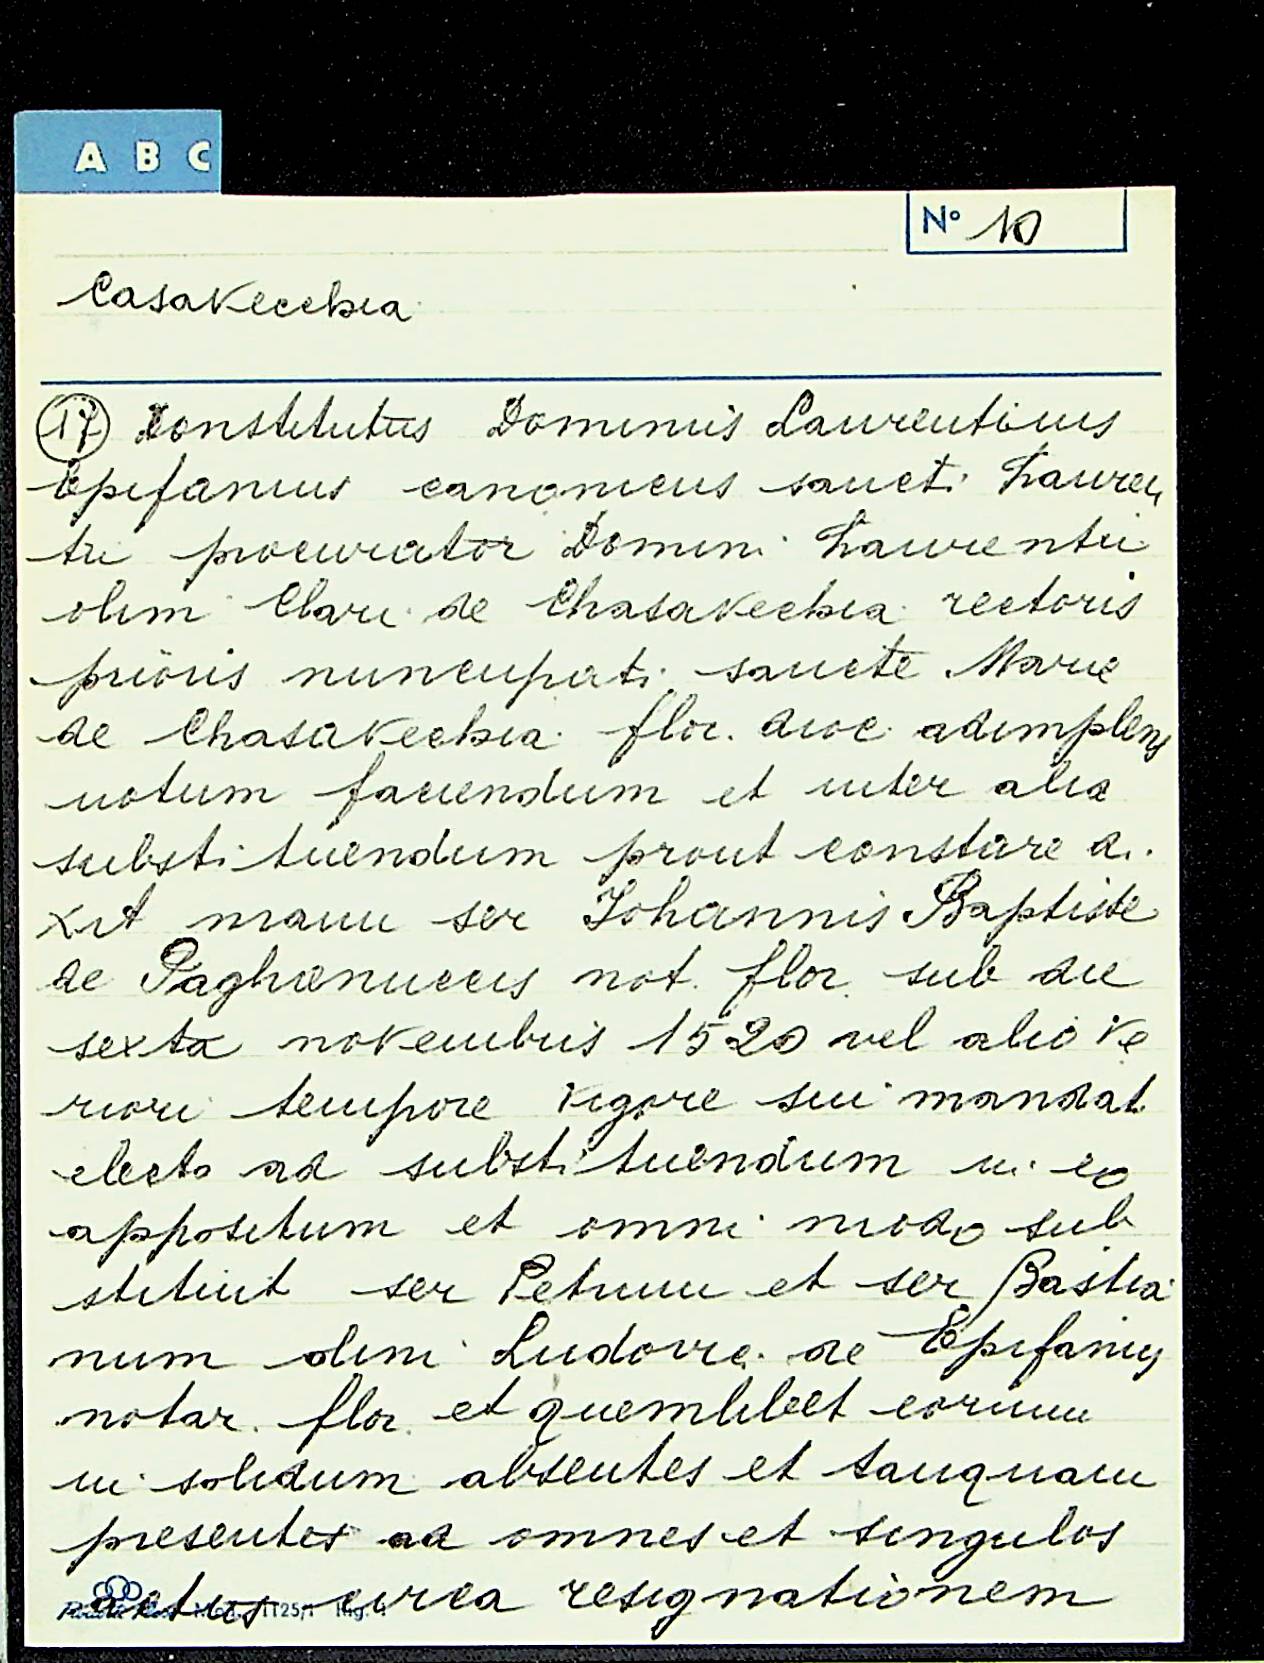 A B C
N° 10
Casavecchia
17 Constitutus Dominus Laurentius
Epifanius canonicus sancti Lauren
tii procurator Domini Laurentii
olim Clari de Chasavechia rectoris
prioris nuncupati sancte Marie
de Chasavechia flor. dioc. adimplens
notum faciendum et inter alia
substituendum prout constare di.
xit manu ser Johannis Baptiste
de Paghanuccis not. flor. sub die
sexta novembris 1520 vel alio ve
riori tempore vigore sui mandat.
electo ad substituendum in eo
appositum et omni modo sub
stituit ser Petrum et ser Bastia
num olim Ludovici de Epifaniis
notar. flor. et quemlibet eorum
in solidum absentes et tanquam
presentes ad omnes et singulos
actus circa resignationem
Mod. 1125/1 Rig. 1